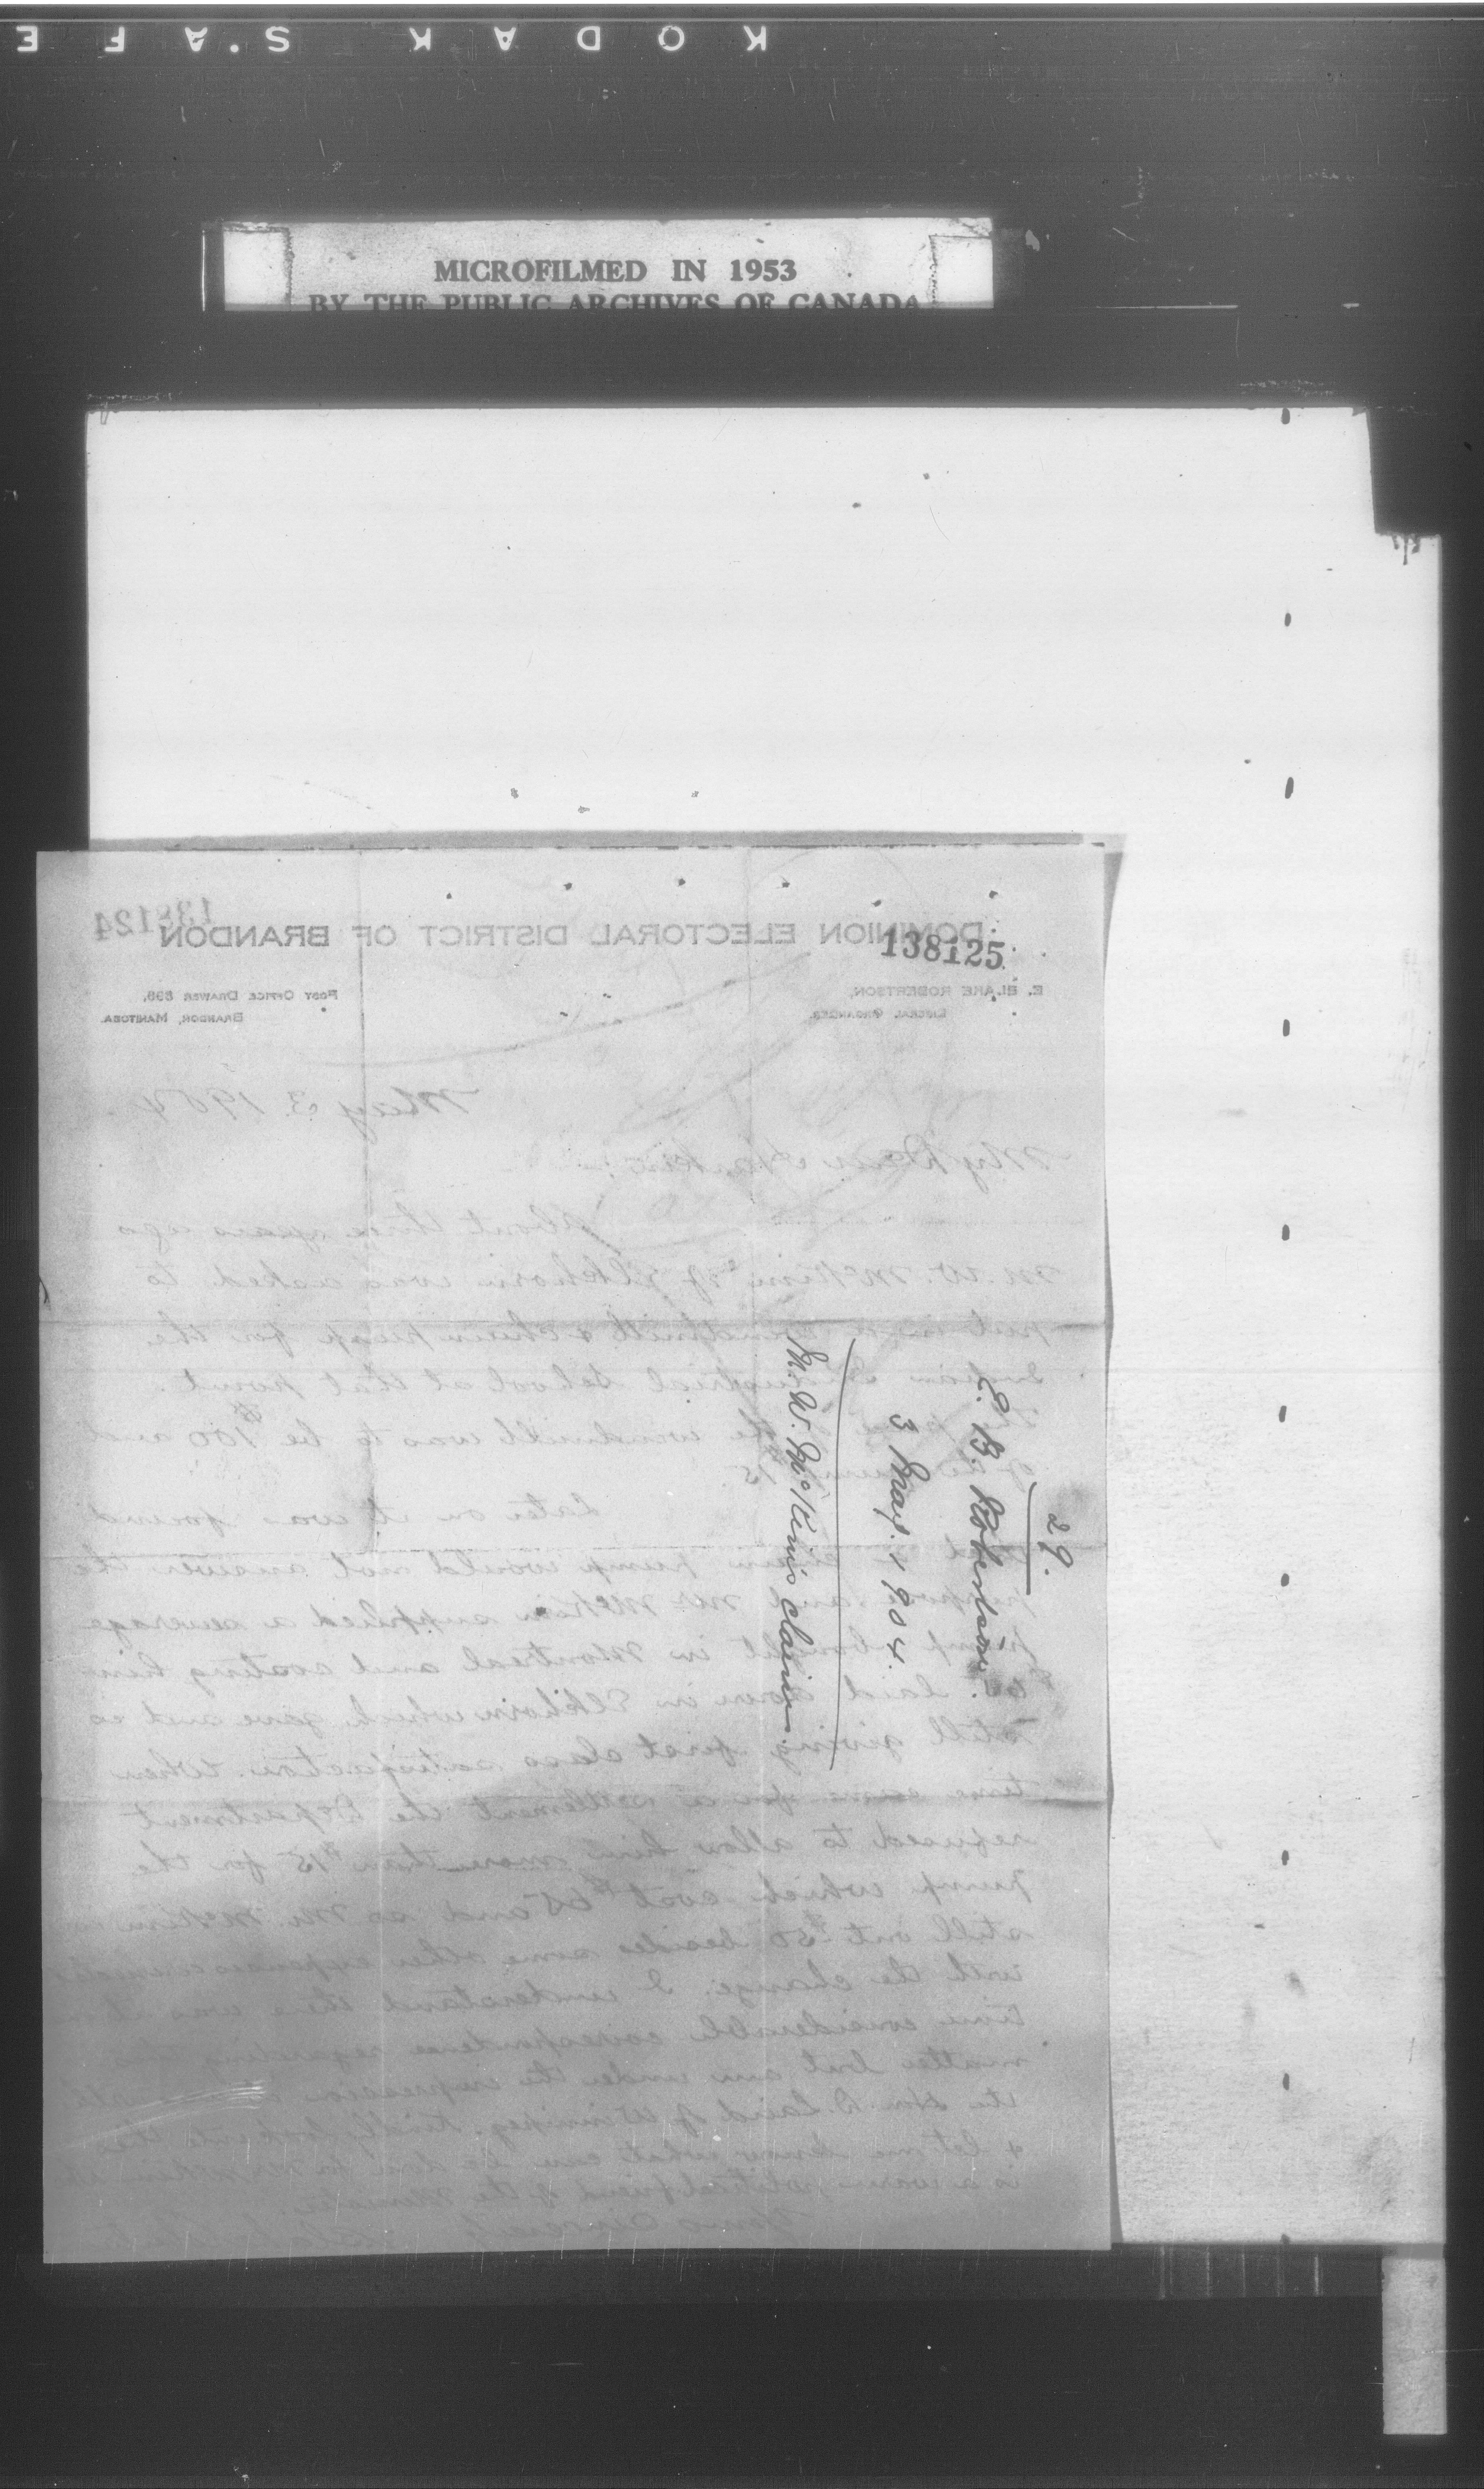 KODAK S.A.F.E
MICROFILMED IN 1953
BY THE PUBLIC ARCHIVES OF CANADA
138124
DOMINION ELECTORAL DISTRICT OF BRANDON
138125
E. BLAKE ROBERTSON,
LIBERAL ORGANIZER.
POST OFFICE DRAWER 898,
BRANDON, MANITOBA.
May 3 1904
My Dear
About three years ago
M. W. McKim of Elkhorn was asked to
put in a windmill & chain pump for the
Indian Industrial School at that point.
windmill was to be $100 and
of the pump $15
Later on it was found
that a chain pump would not answer the
purpose and Mr McKim supplied a sewerage
pump bought in Montreal and costing him
$65. laid down in Elkhorn which gave and is
still giving first class satisfaction. When
time came for a settlement the Department
refused to allow him more than $15 for the
pump which cost $65 and so Mr. McKim is
still out $50 besides some other expenses
with the change. I understand there was at
time considerable correspondence regarding this
matter but am under the impression
Hon D. Laird of Winnipeg. Kindly look into this
& let me know what can be done for Mr McKim
is a warm political friend of the Minister.
Yours Sincerely
29.
E. B. Robertson
3 May. 1904.
M. W. McKim's claim